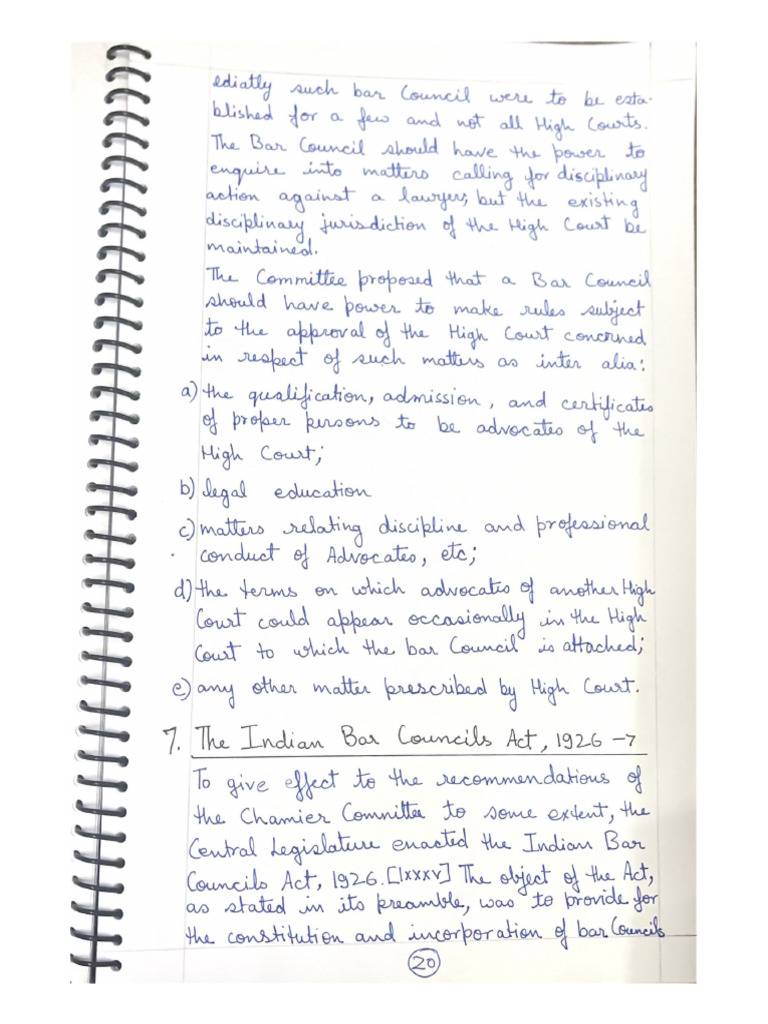 ediatly such bar Council were to be esta-
blished for a few and not all High Courts.
The Bar Council should have the power to
enquire into matters calling for disciplinary
action against a lawyer, but the existing
disciplinary jurisdiction of the High Court be
maintained.
The Committee proposed that a Bar Council
should have power to make rules subject
to the approval of the High Court concrned
in respect of such matters as inter alia:
a) the qualification, admission, and certificates
of proper persons to be advocates of the
High Court;
b) legal education
c) matters relating discipline and professional
conduct of Advocates, etc;
d) the terms on which advocates of another High
Court could appear occasionally in the High
Court to which the bar Council is attached;
e) any other matter prescribed by High Court.
7. The Indian Bar Councils Act, 1926 →
To give effect to the recommendations of
the Chamier Committee to some extent, the
Central Legislature enacted the Indian Bar
Councils Act, 1926. [lxxxv] The object of the Act,
as stated in its preamble, was to provide for
the constitution and incorporation of bar Councils
20